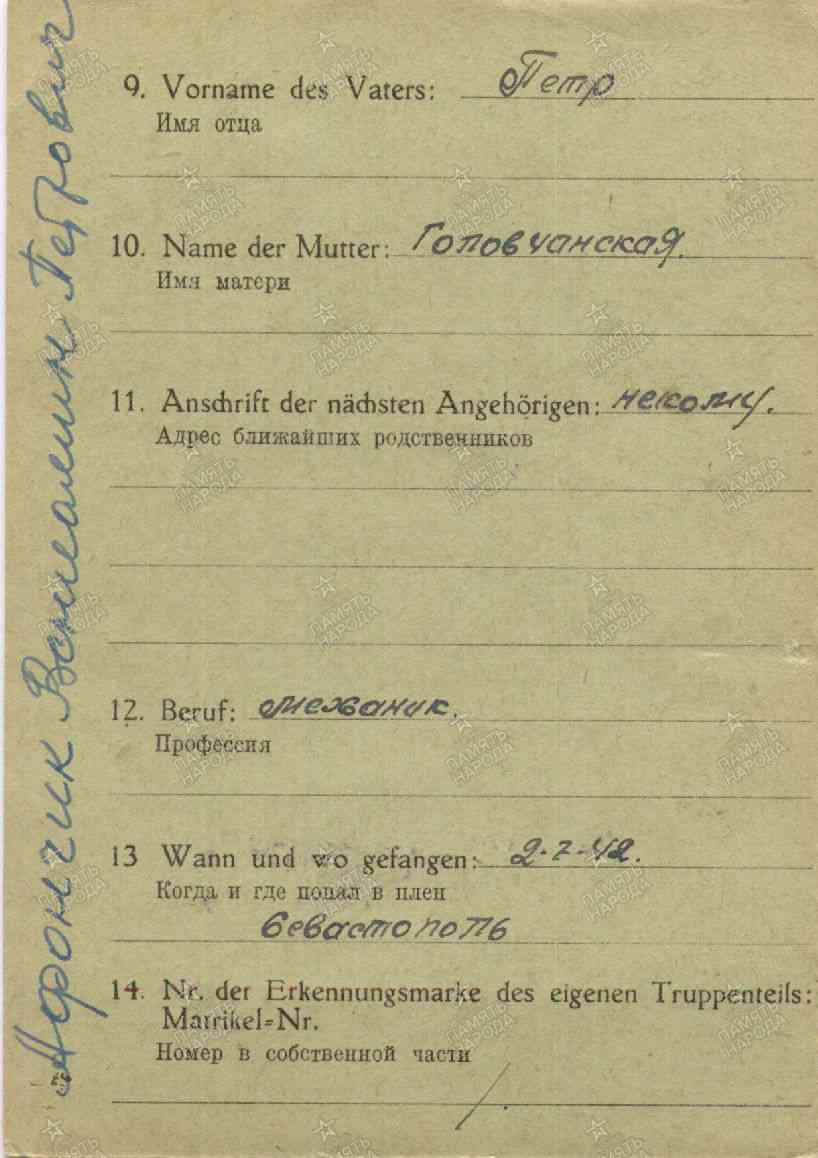 Афончик Вениамин Петрович
9. Vorname des Vaters: Петр
Имя отца
10. Name der Mutter: Головчанская.
Имя матери
11. Anschrift der nächsten Angehörigen: некому.
Адрес ближайших родственников
12. Beruf: механик.
Профессия
13 Wann und wo gefangen: 2-7-42.
Когда и где попал в плен
Севастополь
14. Nr. der Erkennungsmarke des eigenen Truppenteils:
Matrikel=Nr.
Номер в собственной части
ПАМЯТЬ
НАРОДА